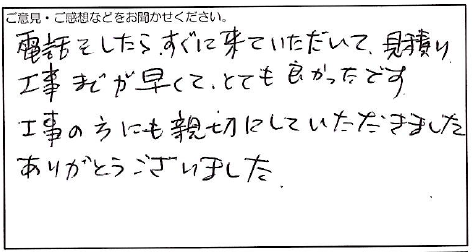 ご意見・ご感想などをお聞かせください。
電話をしたら、すぐに来ていただいて、見積り、
工事までが早くて、とても良かったです
工事の方にも親切にしていただきました
ありがとうございました。